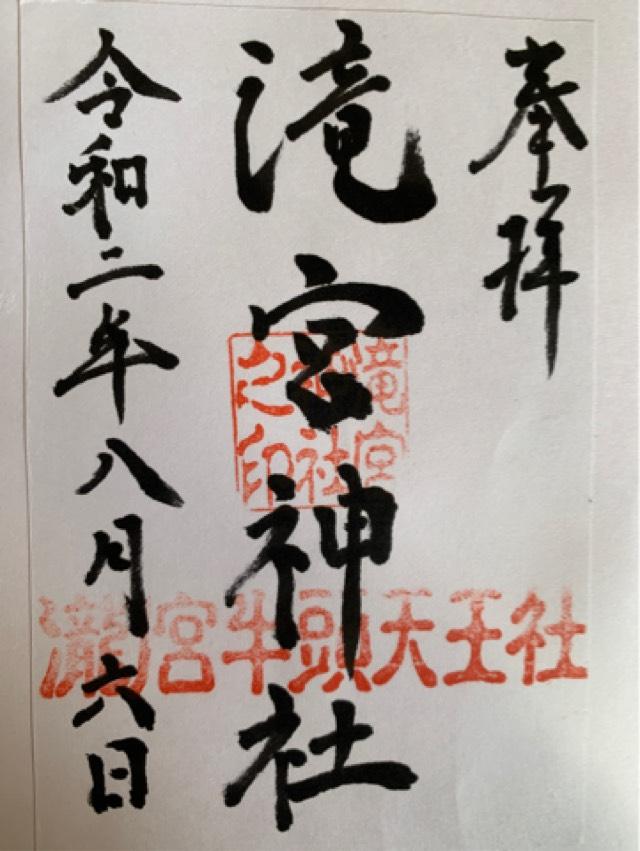 奉拝
滝宮神社
令和二年八月六日
滝宮神社之印
瀧宮牛頭天王社